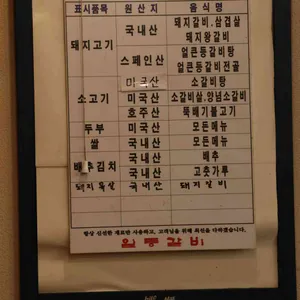 표시품목 원산지 음식명
돼지고기 국내산 돼지갈비.삼겹살
돼지왕갈비
스페인산 얼큰등갈비탕
얼큰등갈비전골
소고기 미국산 소갈비탕
미국산 소갈비살.양념소갈비
호주산 뚝배기불고기
두부 미국산 모든메뉴
쌀 국내산 모든메뉴
배추김치 국내산 배추
국내산 고춧가루
돼지목살 국내산 돼지갈비
항상 신선한 재료만 사용하고, 고객님을 위해 최선을 다하겠습니다.
원흥갈비